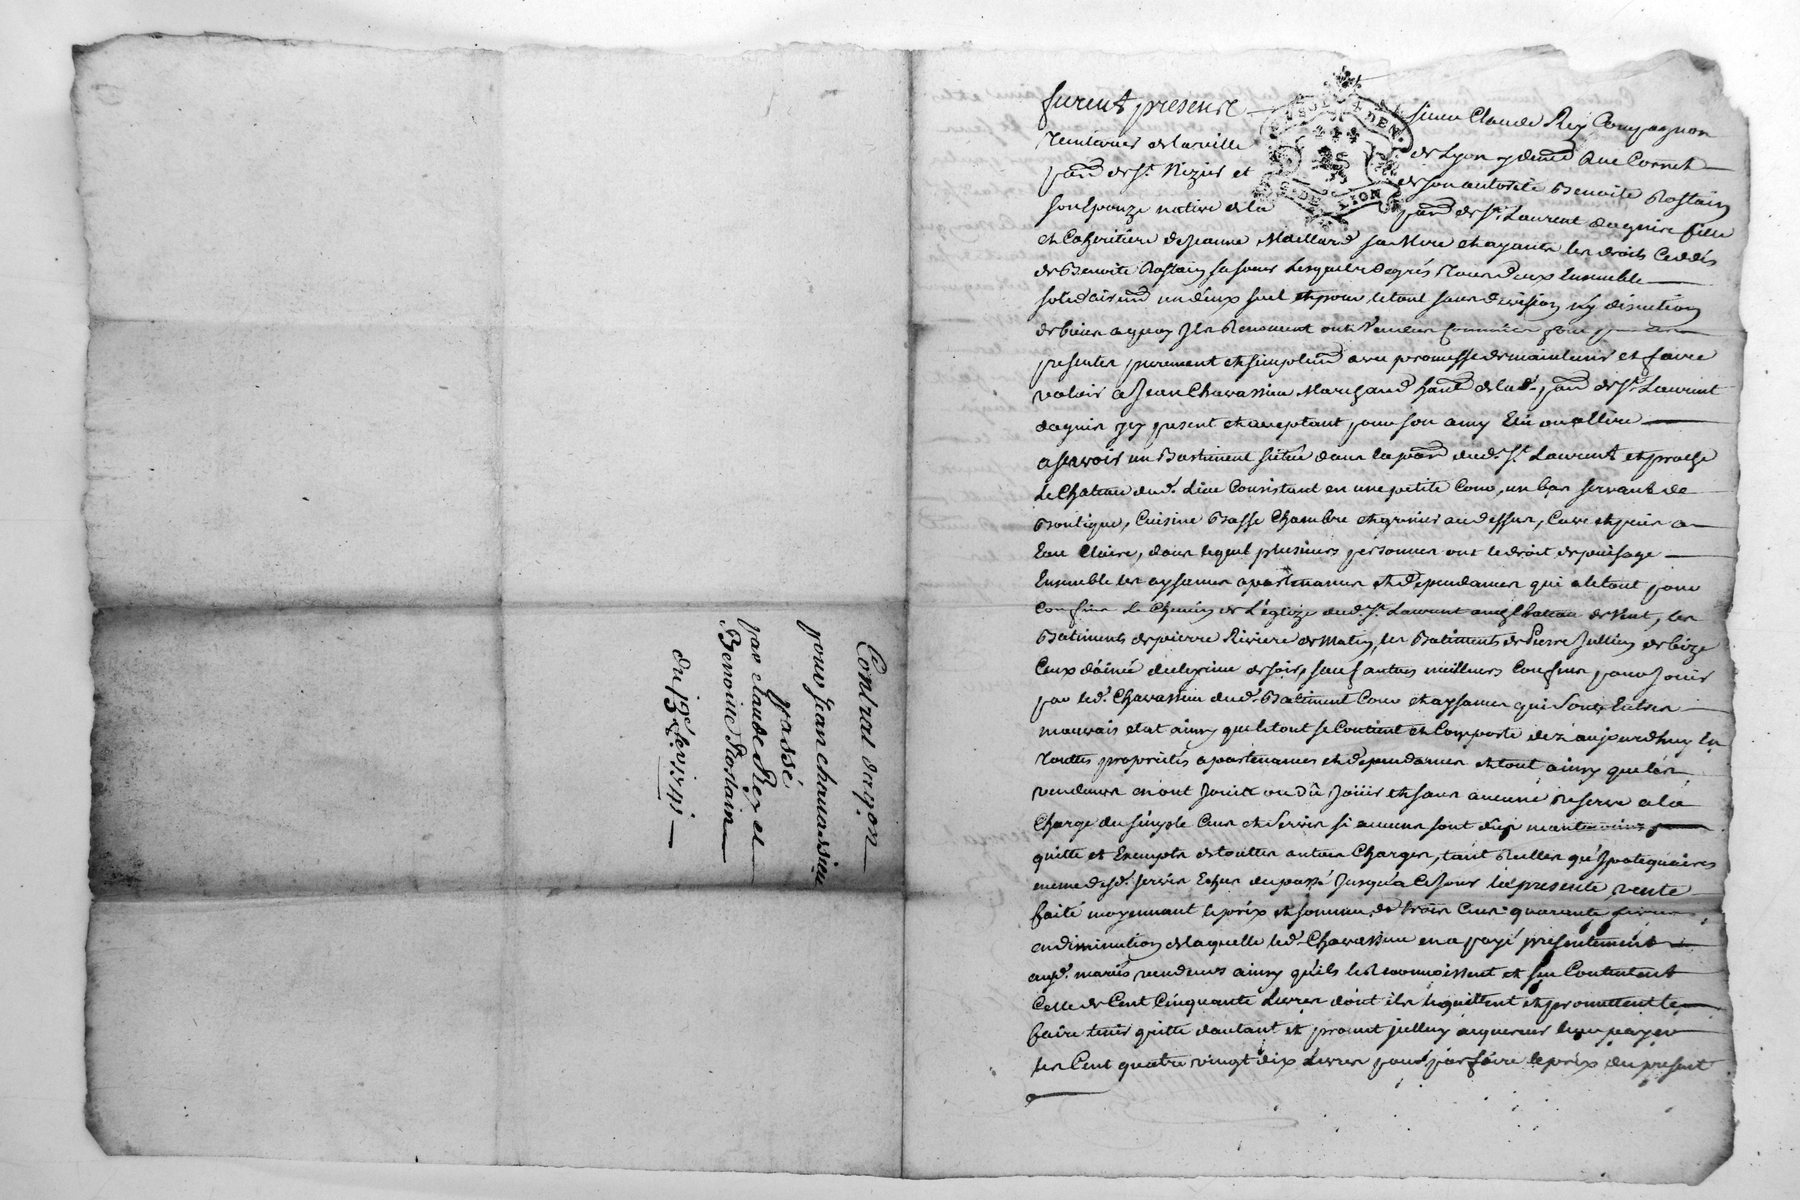 Contrat dacqon
pour Jean chavassieu
passé
par Claude Rey et
Benoitte Rostain
Du 13e 1741
DEN.
S. DE LION
furent presens sieur Claude Rey Compagnon
Teinturier de la ville de Lyon y demt Rue Cornet
parr de St Nizier et de son autorité Benoite Rostain
son Epouze native de la parr de St Laurent dagnier fille
et Coheritiere de Jeanne Maillard sa Mere et ayante les droits Ceddés
de Benoite Rostain sa soeur Lesquels de grés Tous deux Ensemble
solidairemt un deux seul et pour le tout sans division ny discution
de biens a quoy Ils Renoncent ont Vendu
presentes purement et simplemt avec promesse de maintenir et faire
valoir a Jean Chavassieu Marchand habt de la de parr de St Laurent
dagnier icy present et acceptant pour son amy Elu ou a Elire
ascavoir un Bastiment situé dans la parr dud. St Laurent et proche
Le Chateau dud. Lieu Consistant en une petite Cour, un bas servant de
Boutique, Cuisine Basse Chambre et grenier au dessus, Cave et puis a
Eau Claire, dans lequel plusieurs personnes ont le droit de puisage
Ensemble les aysances apartenances et dependances qui a le tout pour
Confins Le Chemin de L'églize dud. St Laurent au Chateau de Vent, les
Batiments de pierre Riviere de Matin, les Batiments de Pierre Jullien de bize
Ceux de de soir, sauf autres meilleurs Confins pour Jouir
par led. Chavassieu dud. Batiment Cour et aysances qui sont En tres
mauvais etat ainsy que le tout se Contient et Comporte dez aujourdhuy En
Toutes proprietés apartenances et dependances et tout ainsy que les
vendeurs en ont Jouit ou dû Joüir et sans aucune Reserve a la
Charge du simple Cens et Servis si aucuns sont dûs
quitte et Exempte de touttes autres Charges, tant Reelles qu'hypotequaires
meme desd. servis Echus du passé Jusqu'a Ce Jour la presente vente
faité moyennant le prix et somme de trois Cens quarante livres
en diminution de laquelle led. Chavassieu en a payé presentement
auxd. mariés vendeurs ainsy qu'ils le Reconnoissent et s'en Contentent
Celle de Cent Cinquante Livres dont ils le quittent et promettent le
faire tenir quitte dautant et promit jcelluy acquereur leur payer
les Cent quatre vingt dix Livres pour parfaire le prix du present